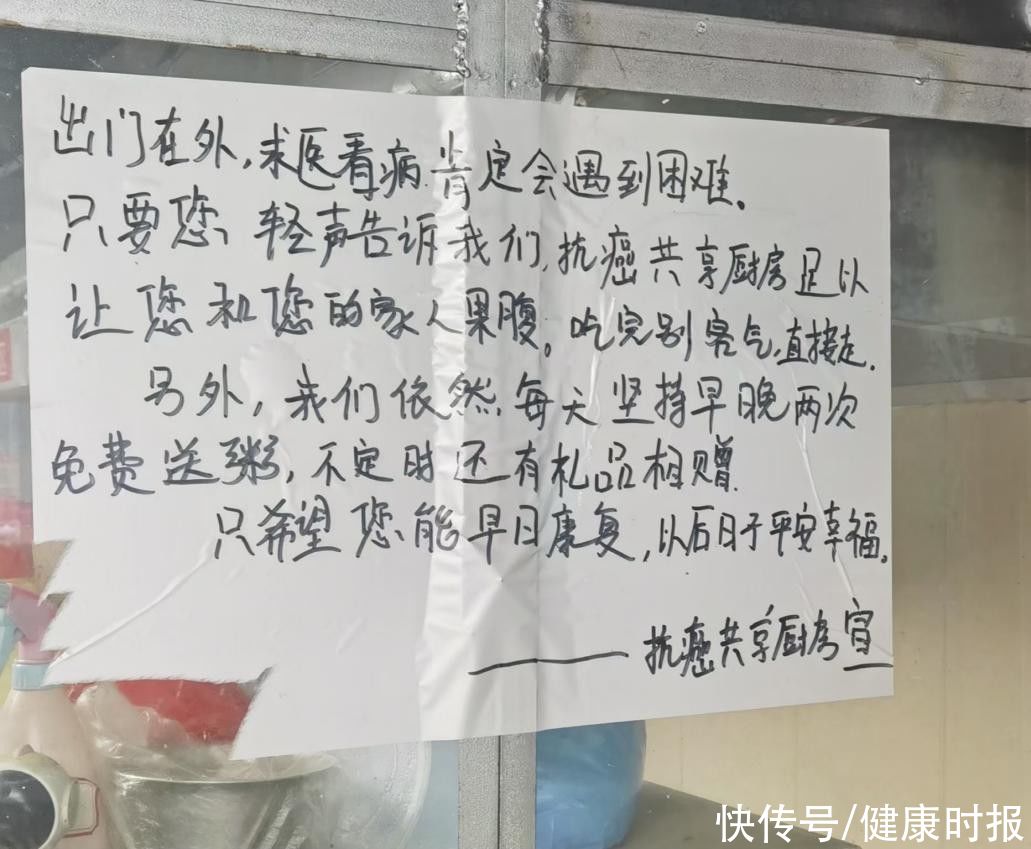 出门在外，求医看病肯定会遇到困难。
只要您轻声告诉我们，抗癌共享厨房足以
让您和您的家人果腹。吃完别客气，直接走。
另外，我们依然每天坚持早晚两次
免费送粥，不定时还有礼品相赠
只希望您能早日康复，以后日子平安幸福。
——抗癌共享厨房宣
快传号/健康时报